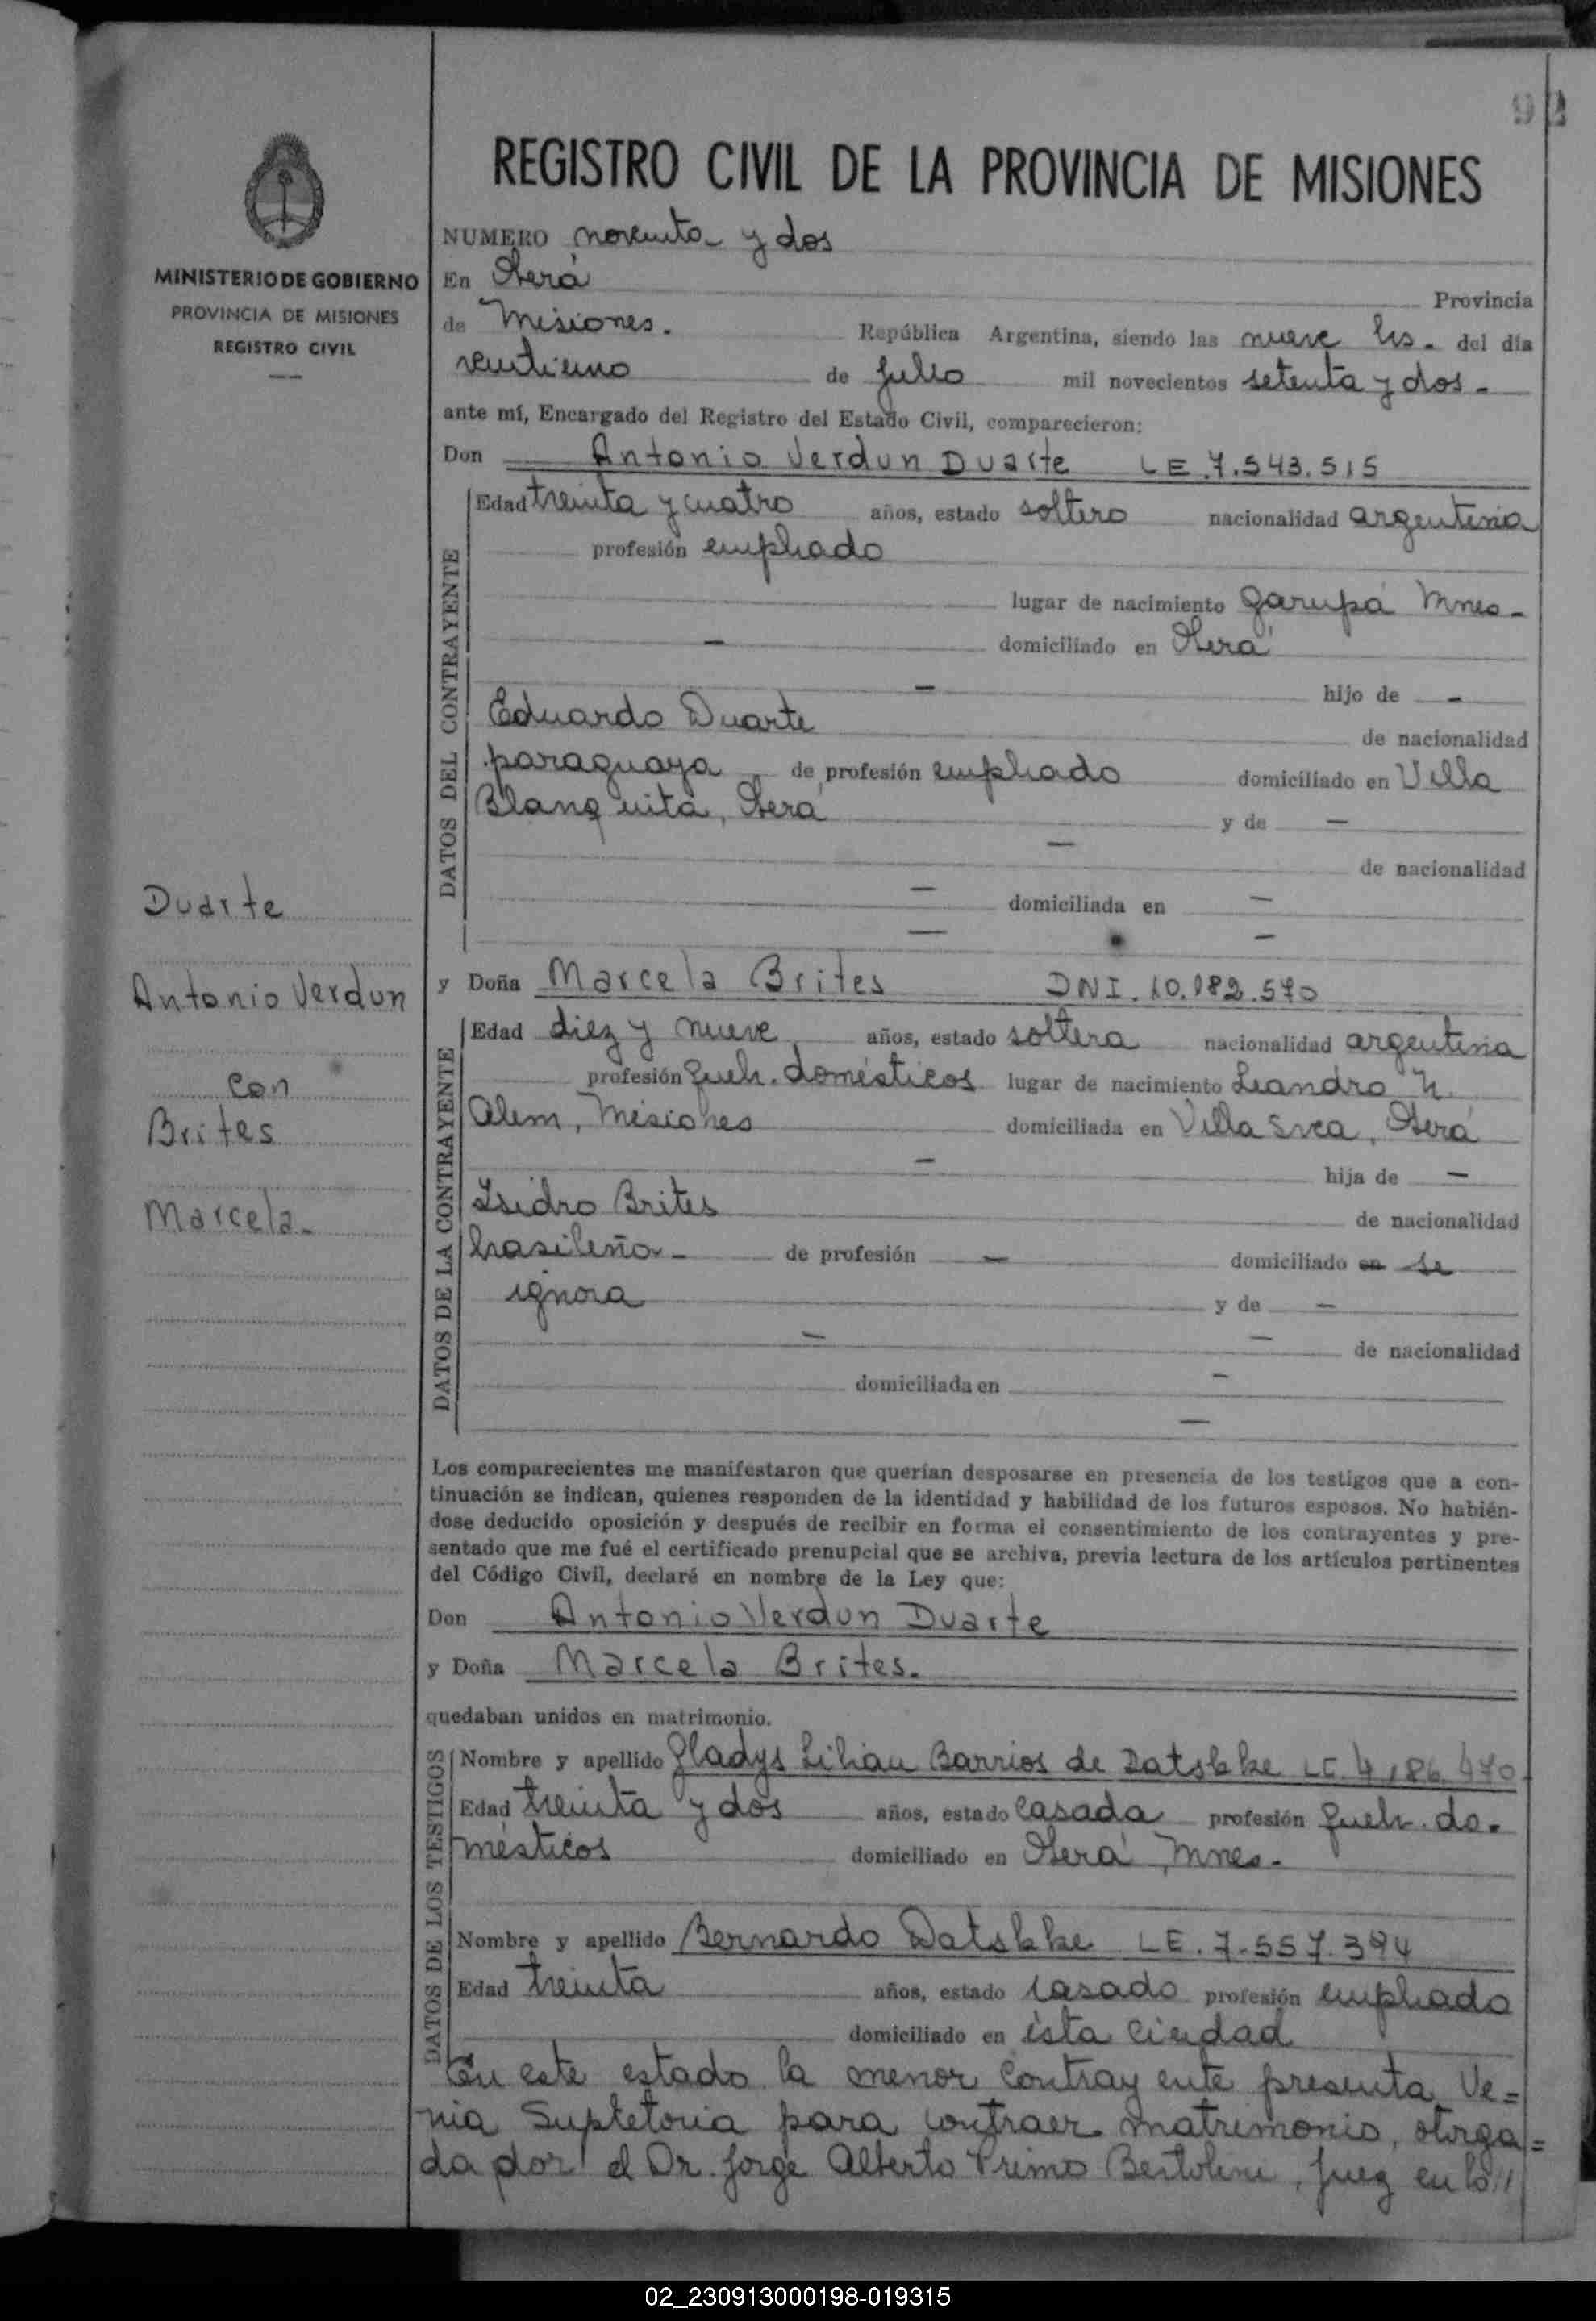 92
REGISTRO CIVIL DE LA PROVINCIA DE MISIONES
MINISTERIO DE GOBIERNO
PROVINCIA DE MISIONES
REGISTRO CIVIL
NUMERO noventa y dos
En Oberá Provincia
de Misiones. República Argentina, siendo las nueve hs. del día
veintiuno de julio mil novecientos setenta y dos -
ante mí, Encargado del Registro del Estado Civil, comparecieron:
Don Antonio Verdun Duarte LE 7.543.515
DATOS DEL CONTRAYENTE
Edad treinta y cuatro años, estado soltero nacionalidad argentina
profesión empleado
lugar de nacimiento Garupá Mnes -
— domiciliado en Oberá
— hijo de -
Eduardo Duarte de nacionalidad
paraguaya de profesión empleado domiciliado en Villa
Blanquita, Oberá y de —
— de nacionalidad
— domiciliada en —
— —
y Doña Marcela Brites DNI. 10.182.570
DATOS DE LA CONTRAYENTE
Edad diez y nueve años, estado soltera nacionalidad argentina
profesión queh. domésticos lugar de nacimiento Leandro N.
Alem, Misiones domiciliada en Villa Svea, Oberá
— hija de —
Isidro Brites de nacionalidad
brasileño - de profesión — domiciliado en se
ignora y de —
— — de nacionalidad
domiciliada en —
—
Los comparecientes me manifestaron que querían desposarse en presencia de los testigos que a con-
tinuación se indican, quienes responden de la identidad y habilidad de los futuros esposos. No habién-
dose deducido oposición y después de recibir en forma el consentimiento de los contrayentes y pre-
sentado que me fué el certificado prenupcial que se archiva, previa lectura de los artículos pertinentes
del Código Civil, declaré en nombre de la Ley que:
Don Antonio Verdun Duarte
y Doña Marcela Brites.
quedaban unidos en matrimonio.
DATOS DE LOS TESTIGOS
Nombre y apellido Gladys Lilian Barrios de Datskke LC. 4.186.470
Edad treinta y dos años, estado casada profesión queh. do-
mésticos domiciliado en Oberá, Mnes -
Nombre y apellido Bernardo Datskke LE. 7.557.394
Edad treinta años, estado casado profesión empleado
domiciliado en ésta ciudad
En este estado la menor contrayente presenta Ve=
nia Supletoria para contraer matrimonio, otorga=
da por el Dr. Jorge Alberto Primo Bertolini, Juez en lo //
Duarte
Antonio Verdun
con
Brites
Marcela -
02_230913000198-019315